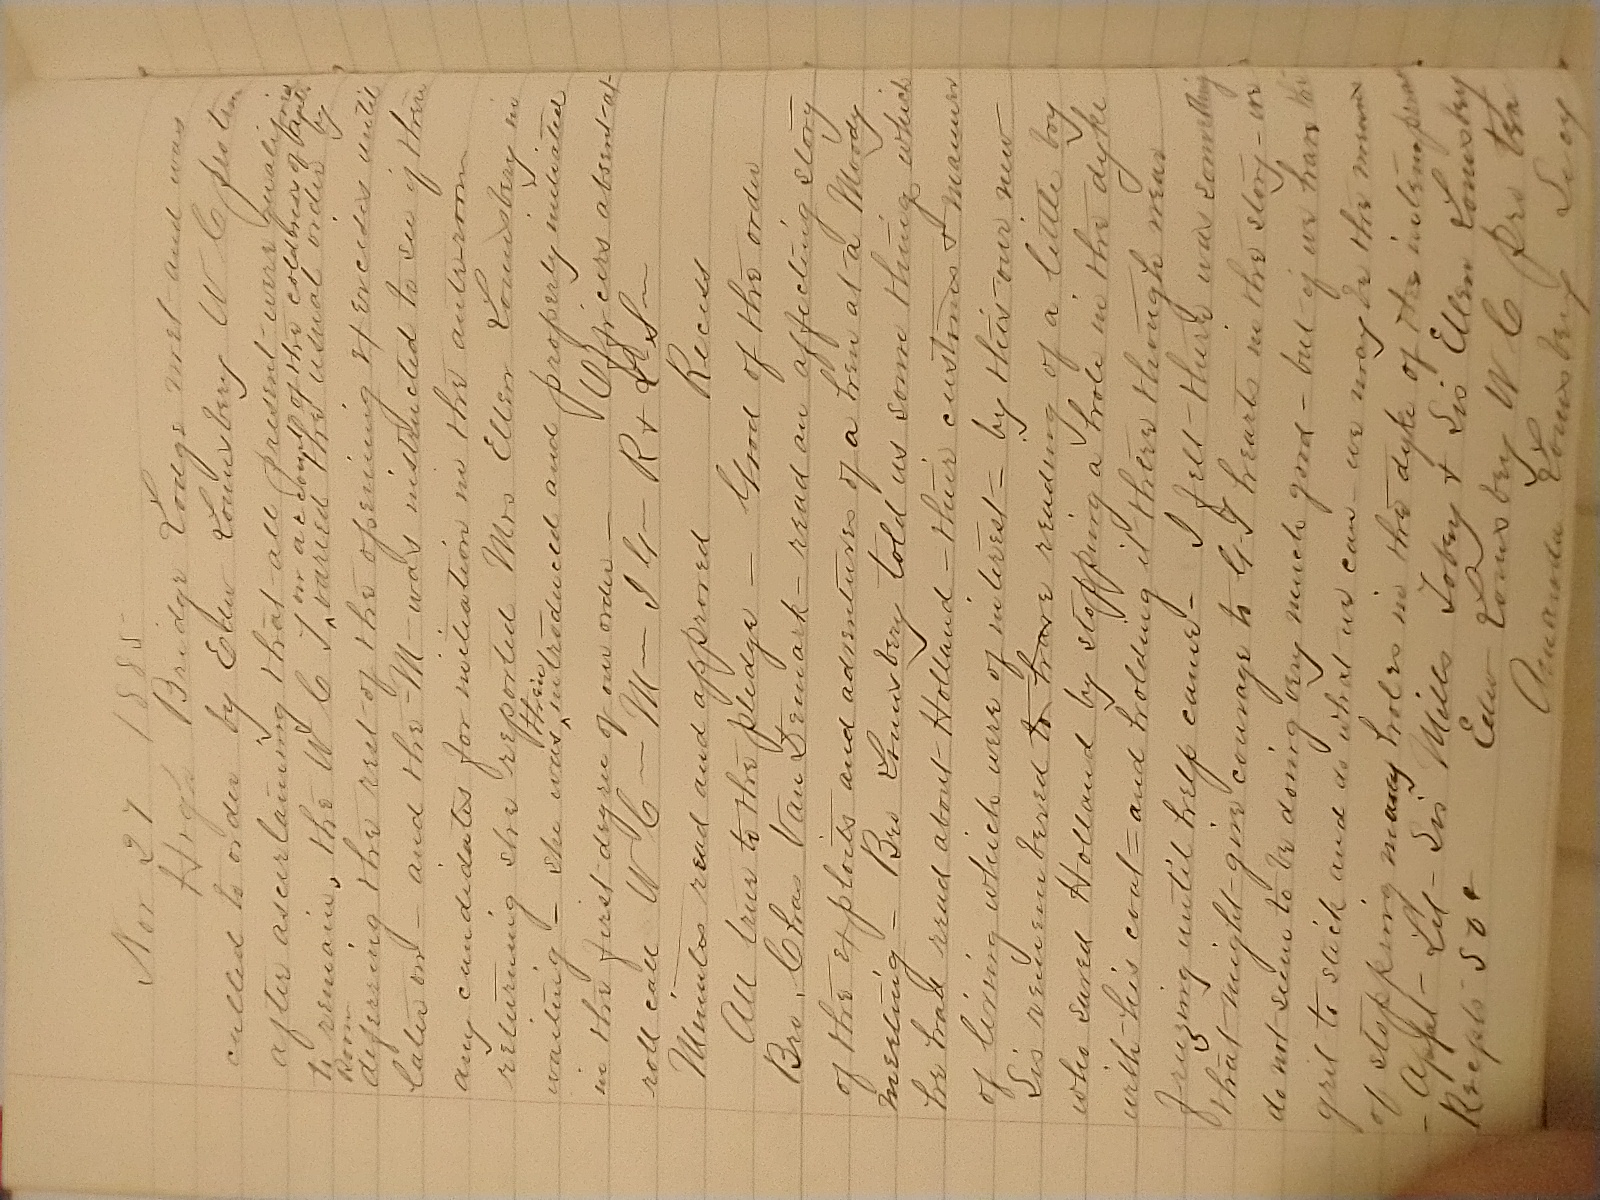 Nov 27 1885
High Bridge Lodge met and was
called to order by Edw Lounsbery W C pro tem
after ascertaining that all present were qualified
on account of the coldness of Ante
to remain, the W C T varied the usual order by
Room
deferring the rest of the opening exercises until
later on - and the M - was instructed to see if there
any candidates for initiation in the anteroom
returning she reported Mrs Ellen Lounsbery in
then
waiting - she was introduced and properly initiated
in the first degree of our order - Officers absent at
roll call W C - M - I G - R + L S -
Minutes read and approved Recess
All true to the pledge - Good of the order
Bro. Chas Van Demark - read an affecting story
of the exploits and adventures of a hen at a Moody
meeting - Bro Lounsbery told us some things which
he had read about Holland - their customs + manner
of living which were of interest - by this our new
Sis remembered to have reading of a little boy
who saved Holland by stopping a hole in the dyke
with his coat = and holding it there though near
freezing until help came - I felt there was something
that might give courage to G T hearts in the story - we
do not seem to be doing very much good - but if we have the
grit to stick and do what we can - we may be the means
of stopping many holes in the dyke of the
- Appt - Lit - Sis Mills Tobey + Sis Ellen Lounsbery
Recpts 50¢ Edw Lounsbery W C pro tem
Amanda Lounsbery Secy